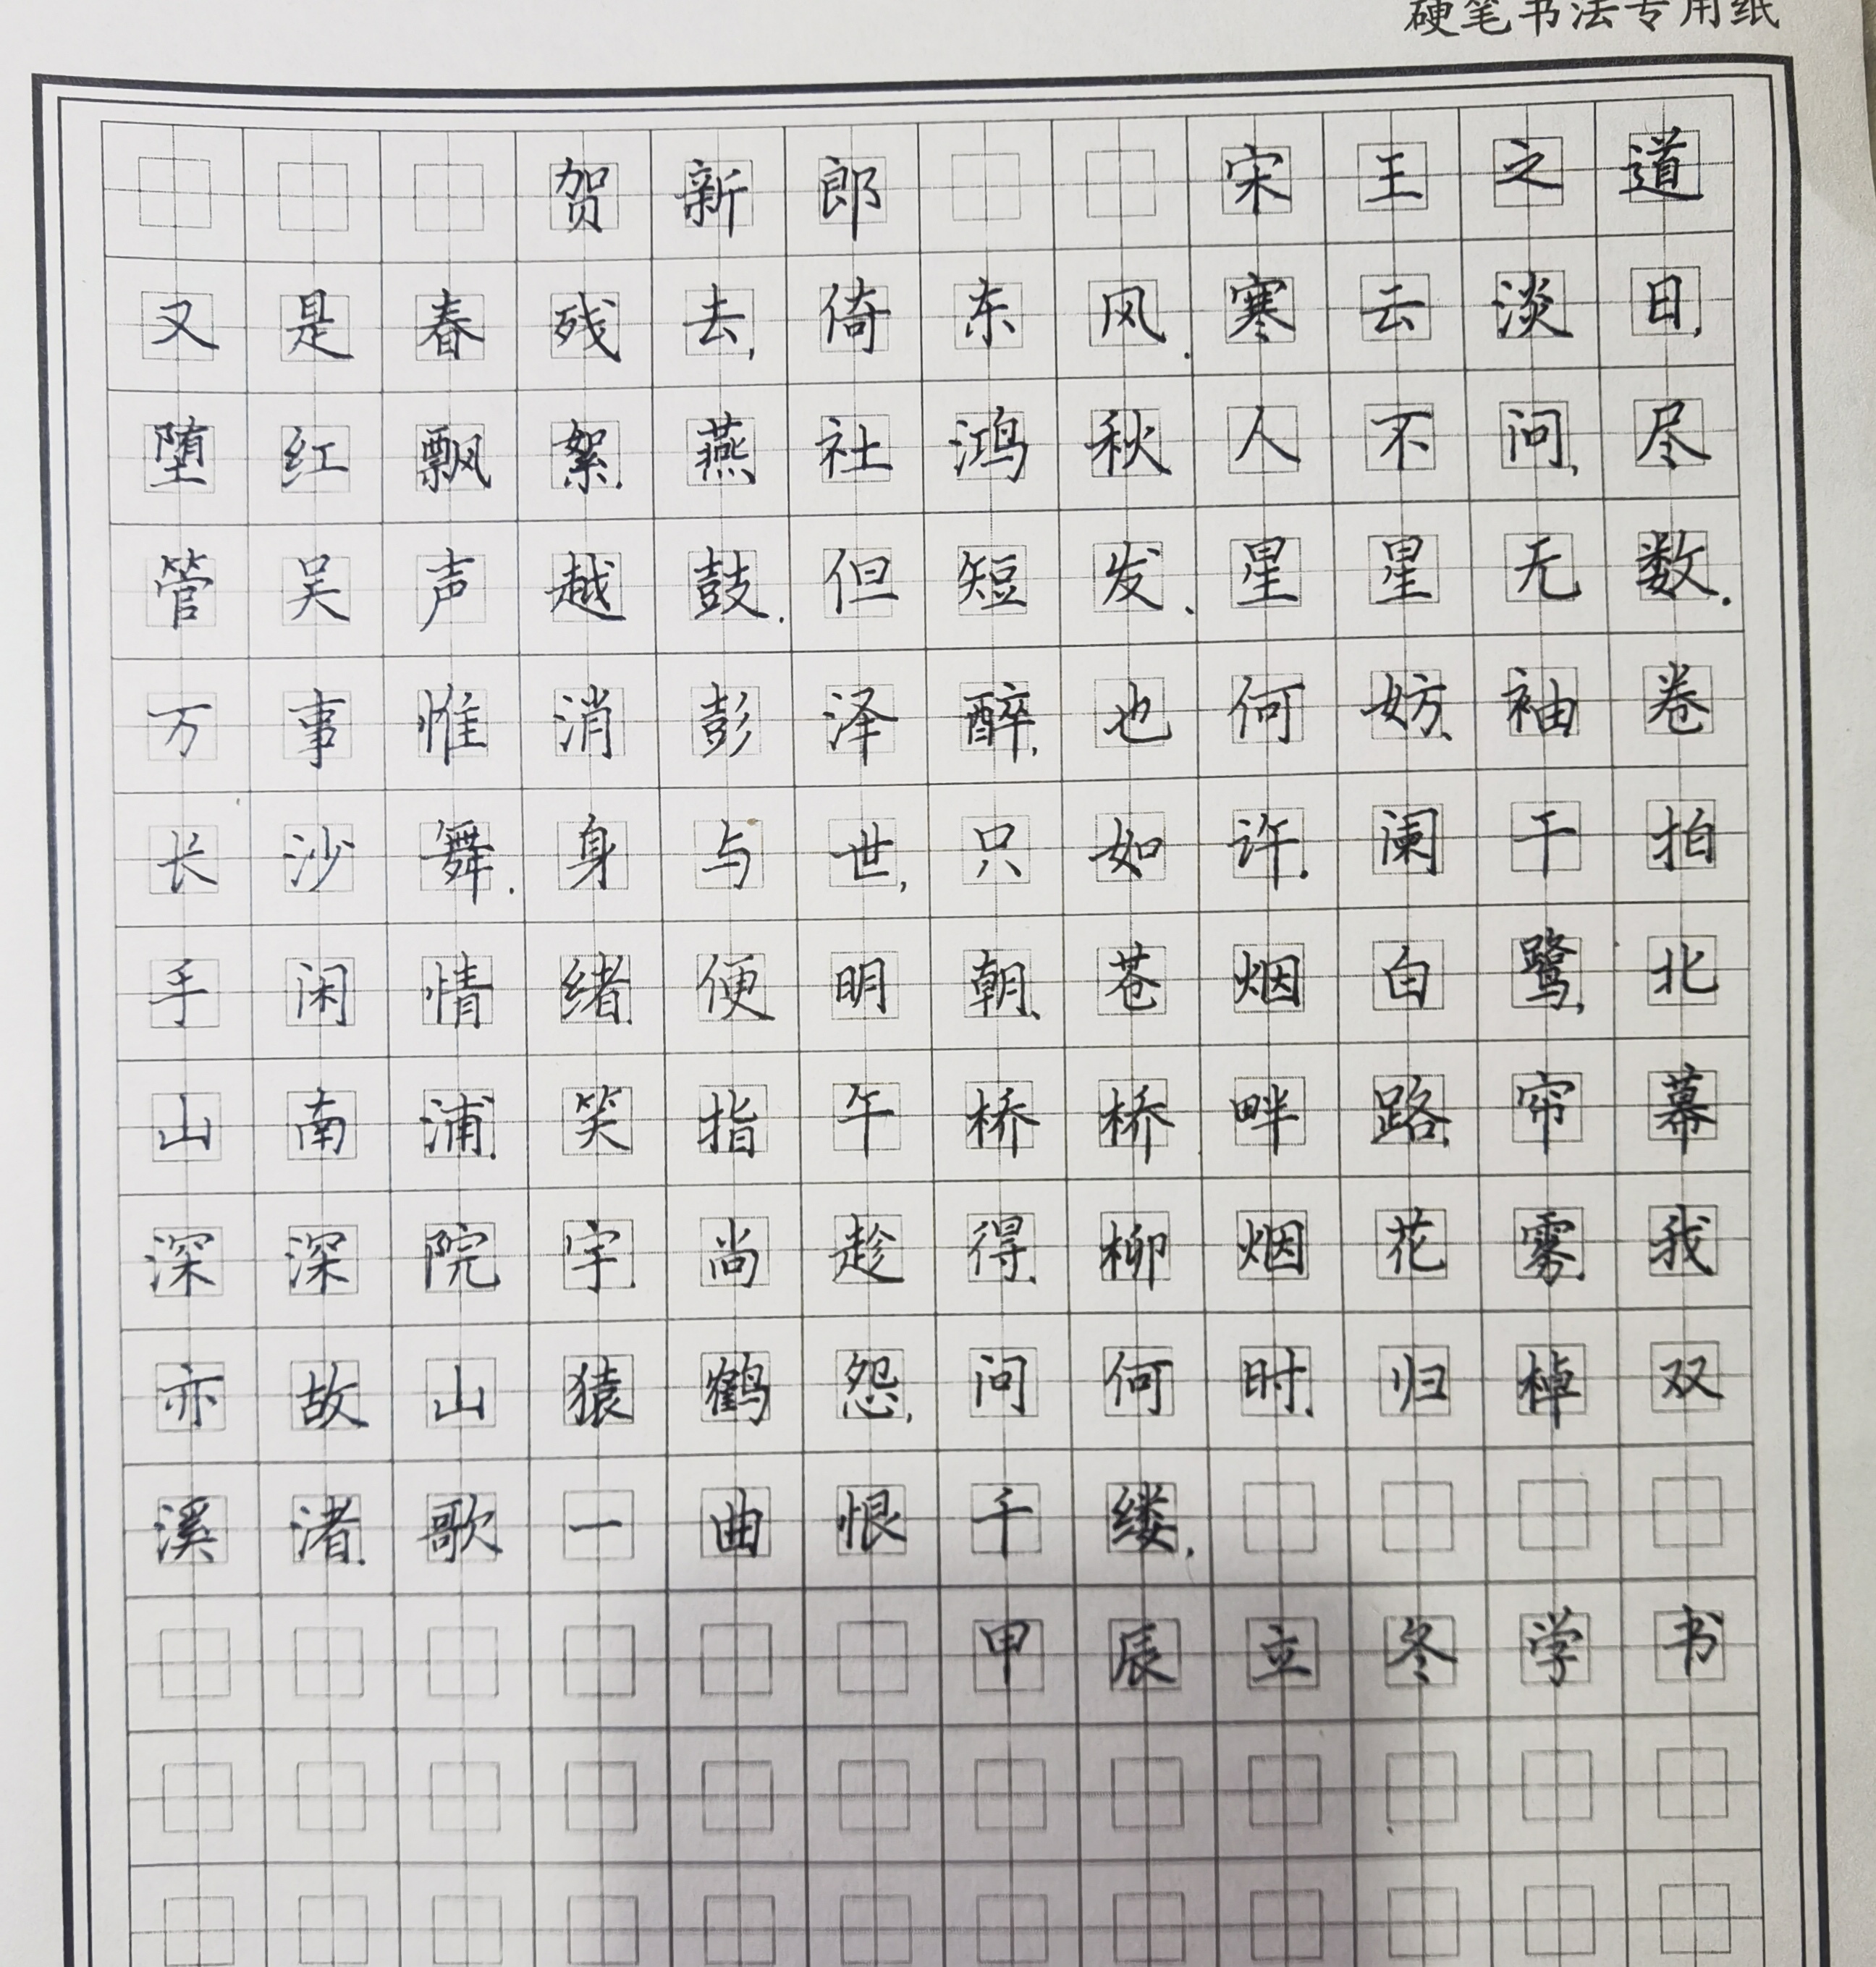 硬笔书法专用纸
贺新郎 宋王之道
又是春残去,倚东风.寒云淡日,
堕红飘絮.燕社鸿秋人不问,尽
管吴声越鼓.但短发、星星无数.
万事惟消彭泽醉,也何妨、袖卷
长沙舞.身与世,只如许.阑干拍
手闲情绪.便明朝、苍烟白鹭,北
山南浦.笑指午桥桥畔路.帘幕
深深院宇.尚趁得、柳烟花雾.我
亦故山猿鹤怨,问何时、归棹双
溪渚.歌一曲恨千缕.
甲辰立冬学书